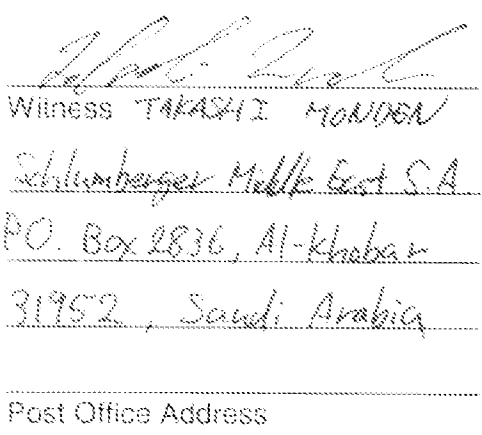 Witness TAKASHI MONDEN
Schlumberger Middle East S.A
P.O. Box 2836, Al-Khobar
31952, Saudi Arabia
Post Office Address